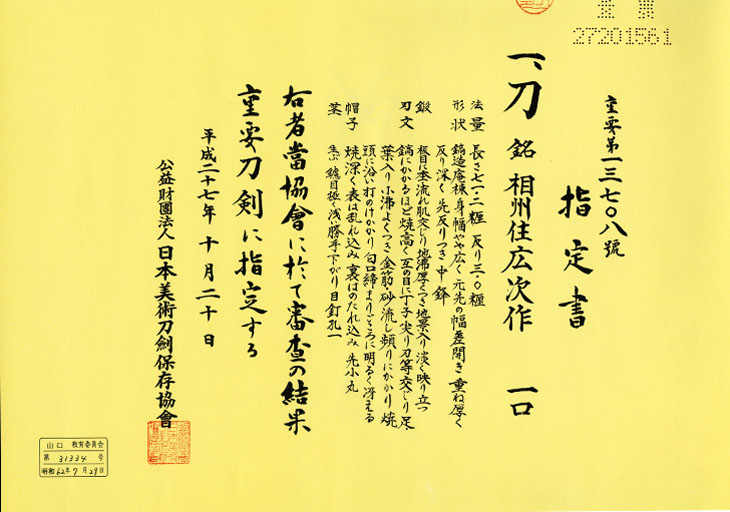 重要
27201561
重要第一三七〇八號
指定書
一、刀 銘 相州住広次作 一口
法量 長さ七一・二糎 反り三・〇糎
形状 鎬造庵棟身幅やや広く元先の幅差開き重ね厚く
反り深く先反りつき中鋒
鍛 板目に杢流れ肌交じり地沸厚くつき地景入り淡く映り立つ
刃文 鎬にかかるほど焼高く互の目に丁子尖り刃等交じり足・
葉入り小沸よくつき金筋・砂流し頻りにかかり焼
頭に沿い打のけかかり匂口締まりごころに明るく冴える
帽子 焼深く表は乱れ込み裏はのたれ込み先小丸
茎 生ぶ鑢目極く浅い勝手下がり目釘孔一
右者當協會に於て審査の結果
重要刀剣に指定する
平成二十七年十月二十日
公益財團法人日本美術刀劍保存協會
山口 教育委員会
第 31334 号
昭和62年7月29日